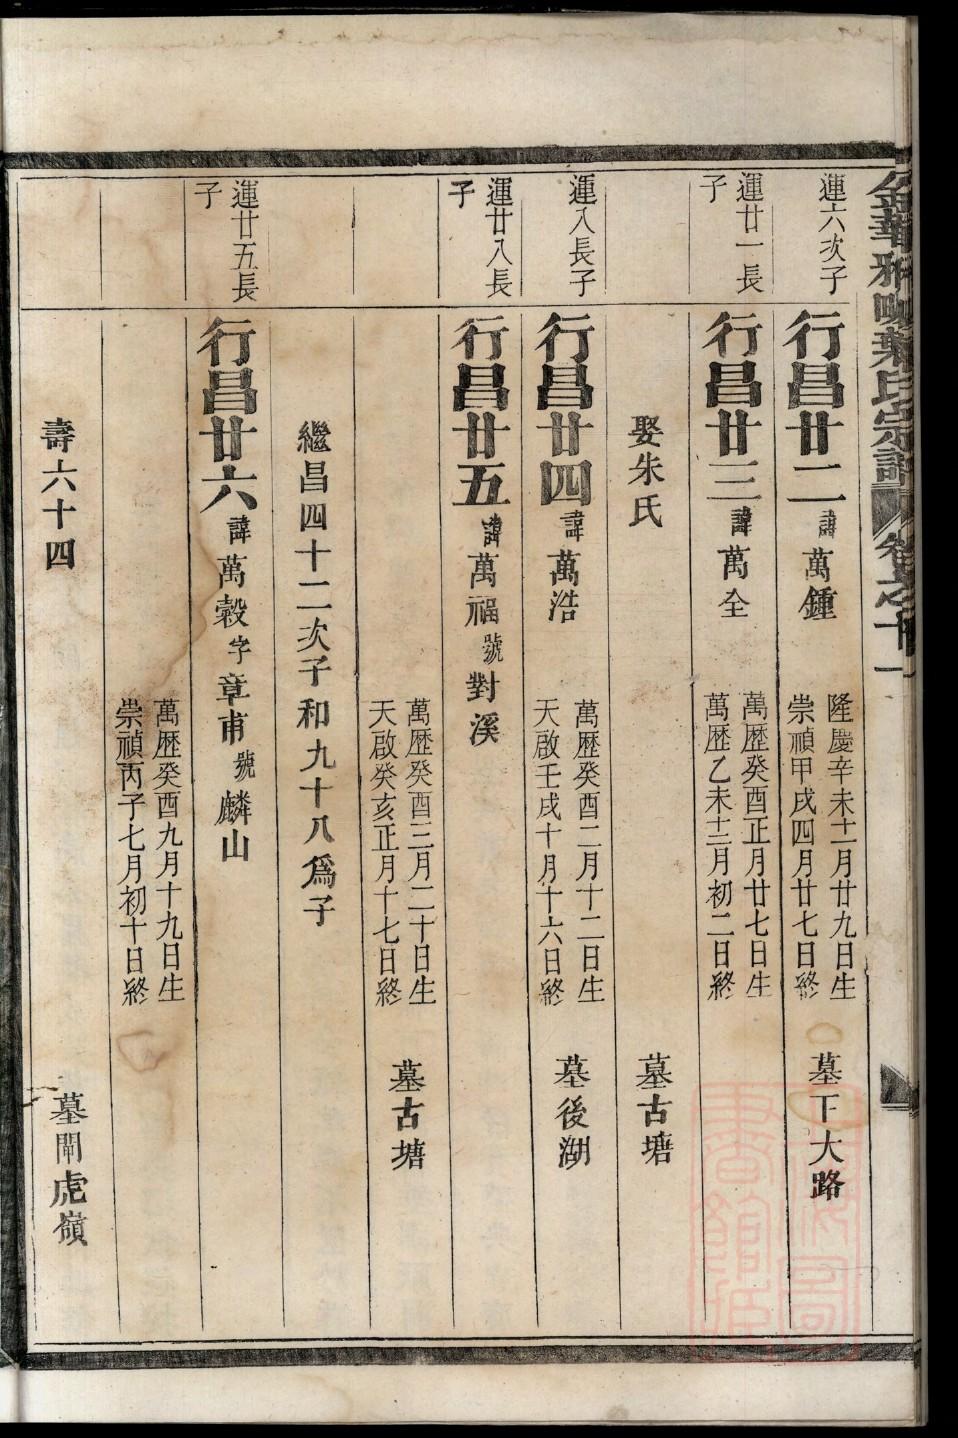 金華雅畈葉氏宗譜 卷之十一
運六次子
行昌廿二 諱萬鍾
隆慶辛未十二月廿九日生
崇禎甲戌四月廿七日終
墓下大路
運廿一長子
行昌廿三 諱萬全
萬歷癸酉正月廿七日生
萬歷乙未十二月初二日終
娶朱氏 墓古塘
運八長子
行昌廿四 諱萬浩
萬歷癸酉二月十二日生
天啟壬戌十月十六日終
墓後湖
運廿八長子
行昌廿五 諱萬福號對溪
萬歷癸酉三月二十日生
天啟癸亥正月十七日終
墓古塘
繼昌四十二次子和九十八爲子
運廿五長子
行昌廿六 諱萬穀字章甫號麟山
萬歷癸酉九月十九日生
崇禎丙子七月初十日終
壽六十四 墓鬧虎嶺